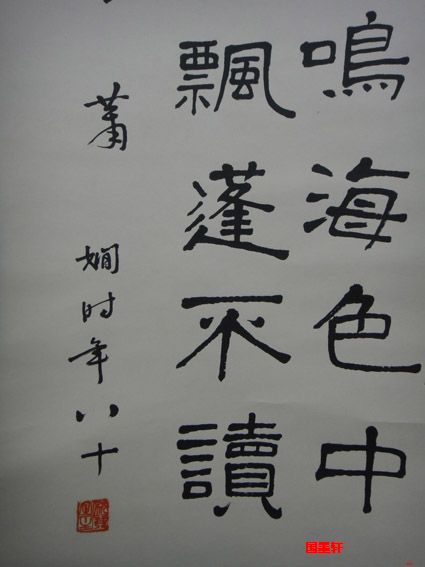 鳴海色中
飄蓬不讀
蕭 嫻时年八十
国墨轩